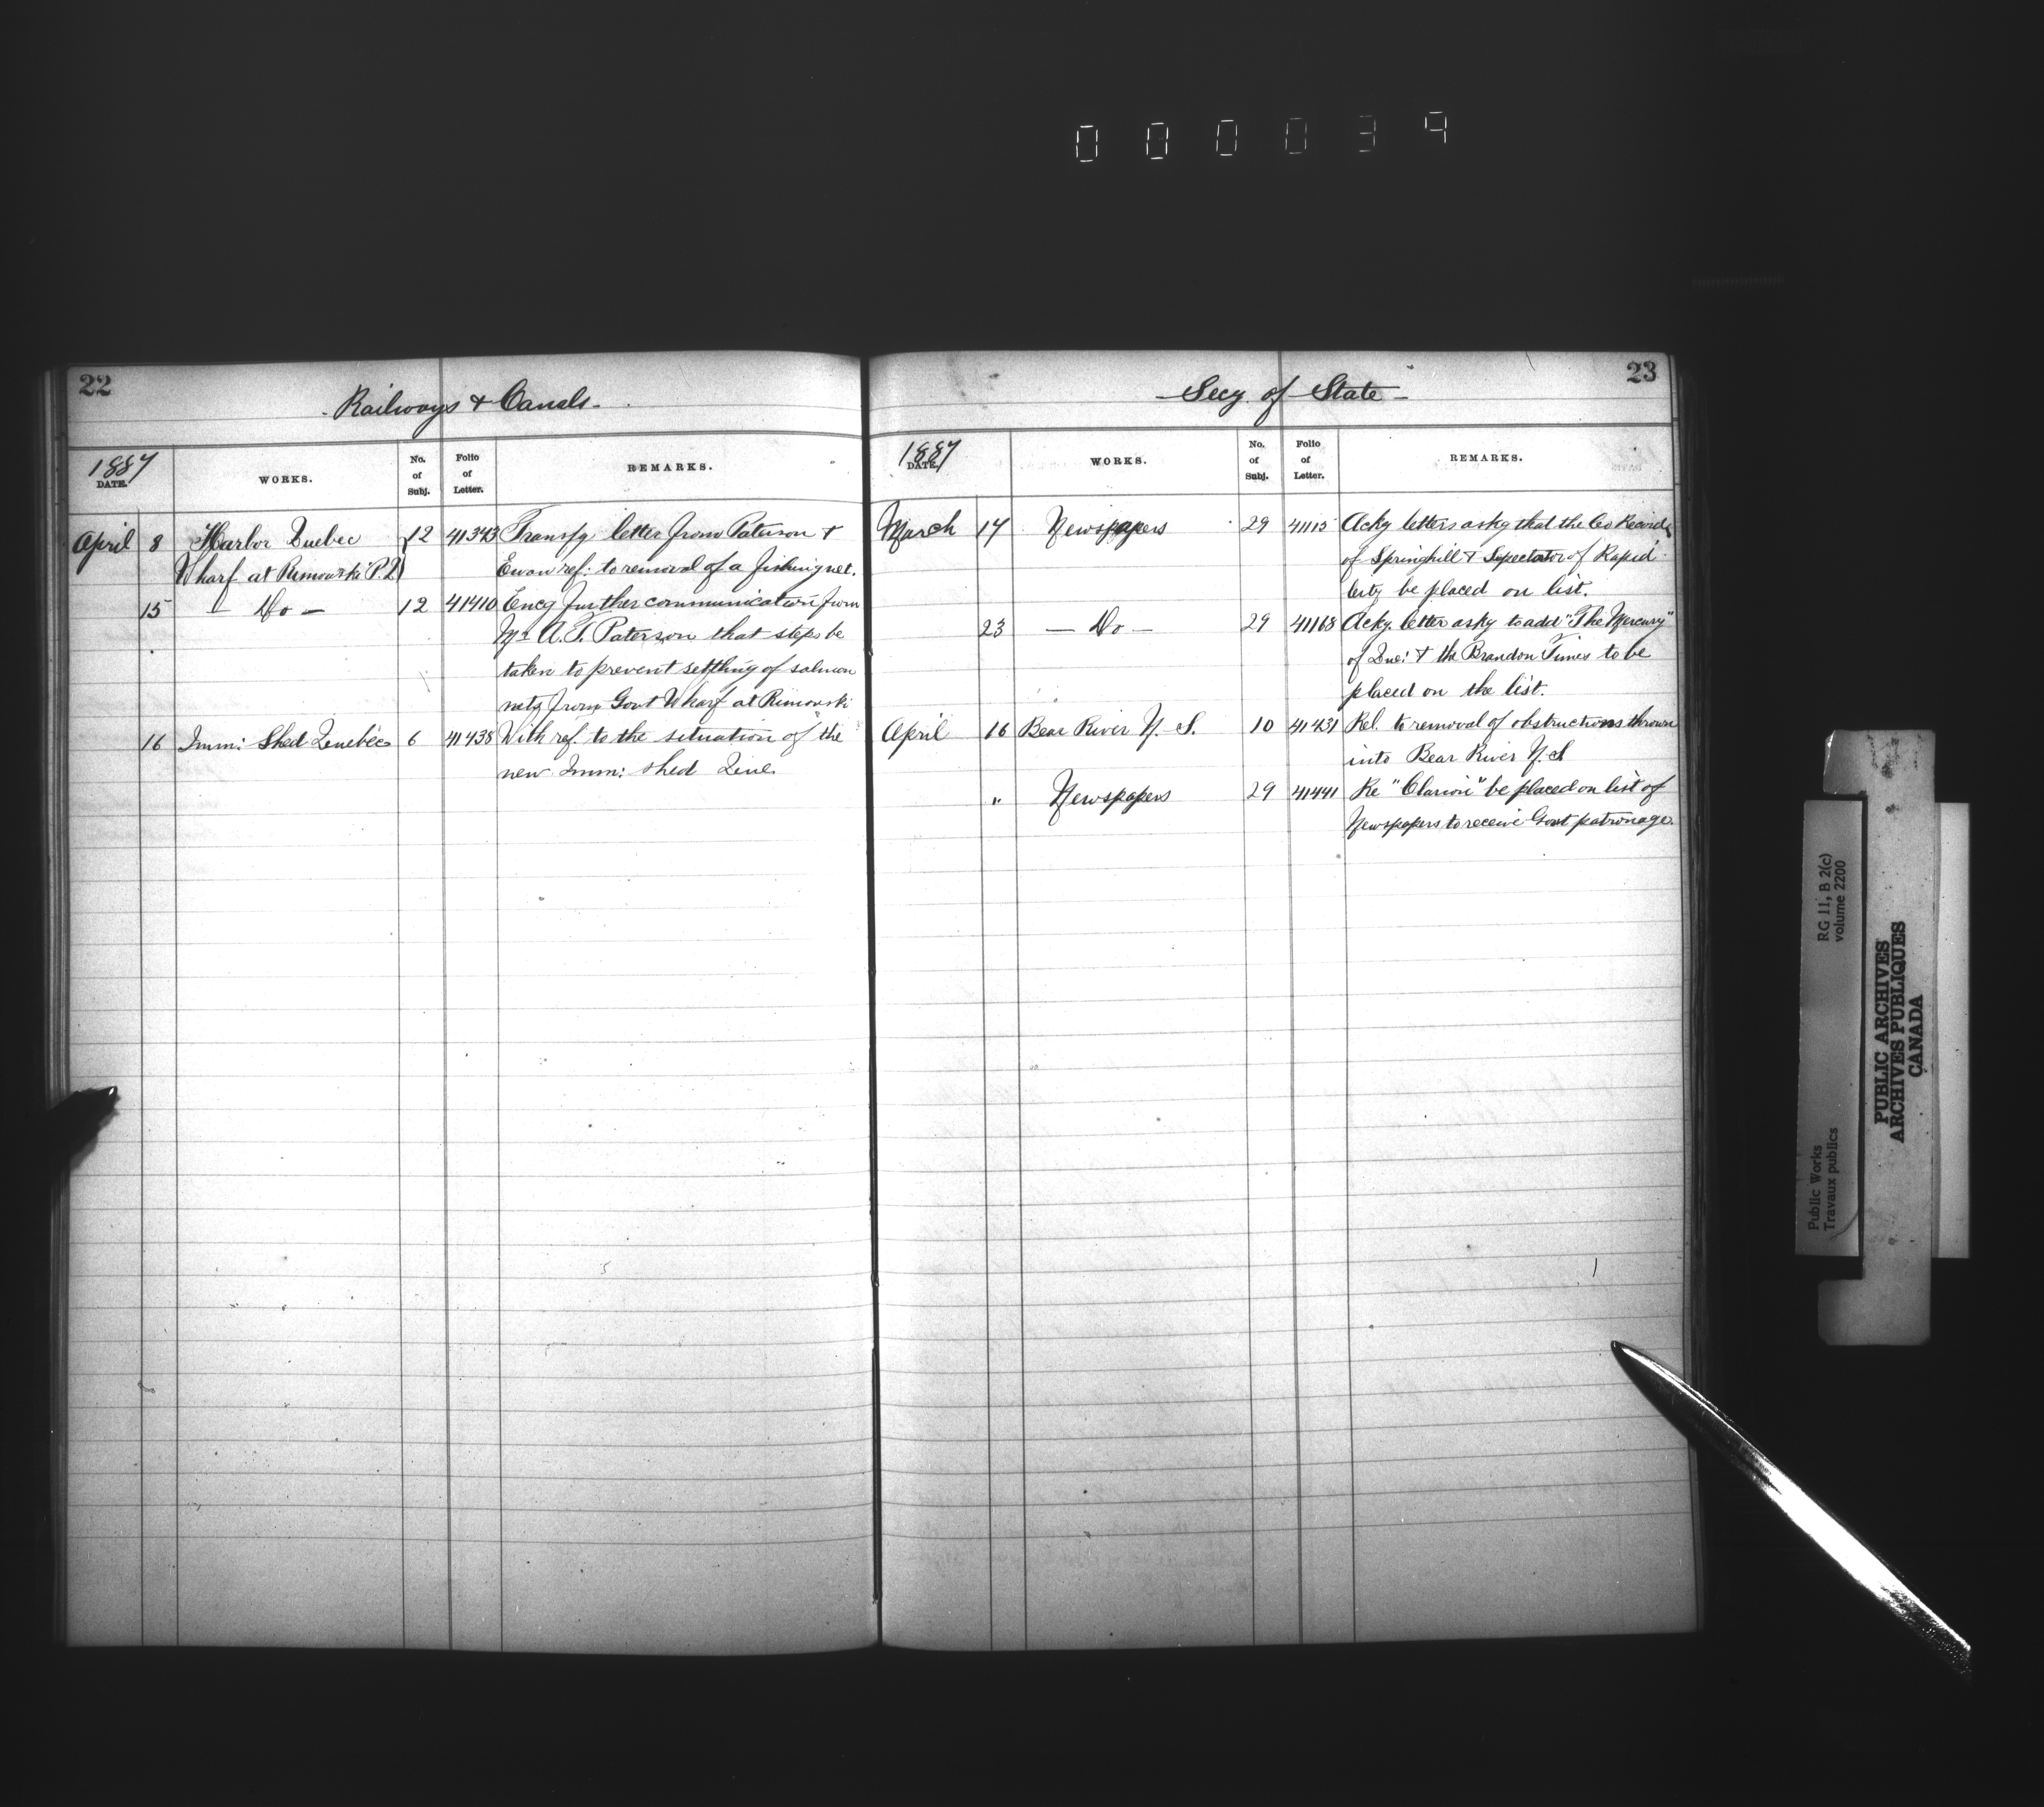 000039
22
Railways & Canals
1887
DATE.
WORKS.
No. of Subj.
Folio of Letter.
REMARKS.
April 8 Harbor Quebec 12 41343 Transfg letter from Paterson &
Wharf at Rimouski P.Q Ewan ref: to removal of a fishing net.
15 — Do — 12 41410 Encg further communication from
Mr A.T. Paterson that steps be
taken to prevent settling of salmon
nets from Govt Wharf at Rimouski
16 Imm: Shed Quebec 6 41438 With ref. to the situation of the
new Imm: shed Que.
23
Secy. of State
1887
DATE.
WORKS.
No. of Subj.
Folio of Letter.
REMARKS.
March 17 Newspapers 29 41115 Ackg letters askg that the Co Record
of Springhill & Spectator of Rapid
City be placed on list.
23 — Do — 29 41168 Ackg. letter askg to add "The Mercury"
of Que: & the Brandon Times to be
placed on the list.
April 16 Bear River N.S. 10 41431 Rel. to removal of obstructions thrown
into Bear River N.S
" Newspapers 29 41441 Re "Clarion" be placed on list of
Newspapers to receive Govt patronage.
Public Works
Travaux publics
RG 11, B 2(c)
volume 2200
PUBLIC ARCHIVES
ARCHIVES PUBLIQUES
CANADA